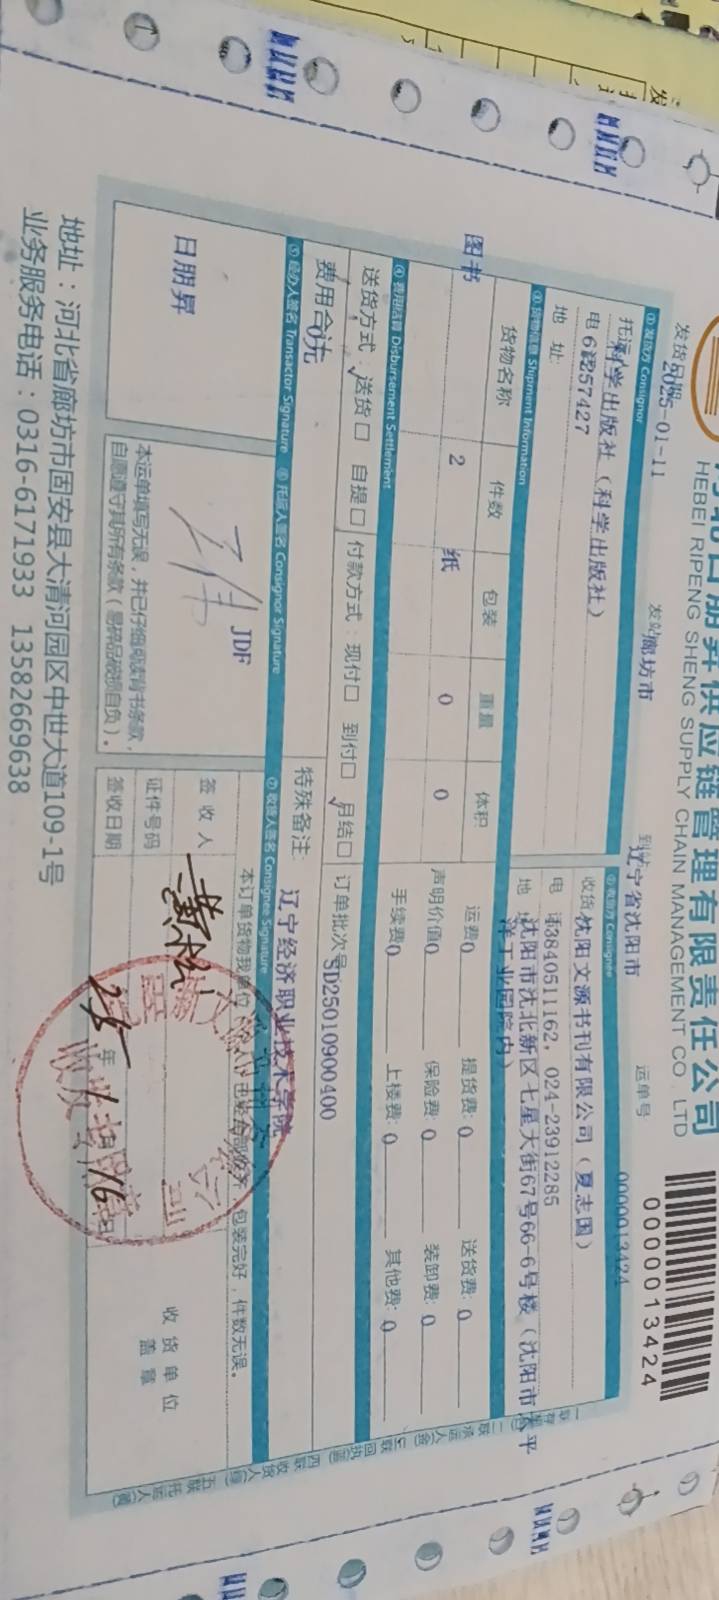 河北日朋昇供应链管理有限责任公司
HEBEI RIPENG SHENG SUPPLY CHAIN MANAGEMENT CO., LTD
0000013424
发货日期 2025-01-11 发站 廊坊市 到站 辽宁省沈阳市 运单号 0000013424
① 发货方 Consignor ② 收货方 Consignee
托运 科学出版社（科学出版社） 收货 沈阳文源书刊有限公司（夏志国）
电 话 57427 电 话 13840511162, 024-23912285
地 址: 地 址 沈阳市沈北新区七星大街67号66-6号楼（沈阳市太平洋工业园院内）
③ 货物信息 Shipment Information
货物名称 件数 包装 重量 体积 运费 0 提货费: 0 送货费: 0
图书 2 纸 0 0 声明价值 0 保险费: 0 装卸费: 0
手续费 0 上楼费: 0 其他费: 0
④ 费用结算 Disbursement Settlement
送货方式: ✓送货□ 自提□ 付款方式: 现付□ 到付□ ✓月结□ 订单批次号 SD25010900400
费用合计 0元 特殊备注: 辽宁经济职业技术学院
⑤ 经办人签名 Transactor Signature ⑥ 托运人签名 Consignor Signature ⑦ 收货人签名 Consignee Signature
日朋昇
JDF
本运单填写无误，并已仔细阅读背书条款，
自愿遵守其所有条款（易碎品破损自负）。
本订单货物我单位 已经全部收齐，包装完好，件数无误。
签 收 人
证件号码
签收日期 25年1月16日
收货单位
盖 章
一联存根
二联承运人
三联回执
四联收货人
五联托运人
地址：河北省廊坊市固安县大清河园区中世大道109-1号
业务服务电话：0316-6171933 13582669638